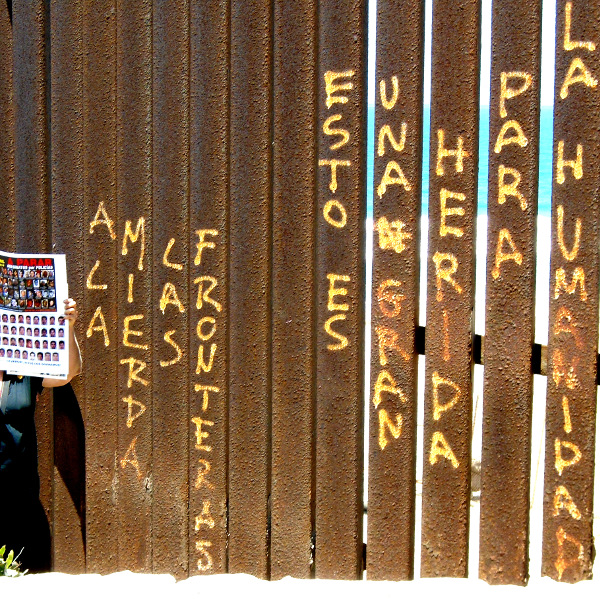 A LA
MIERDA
LAS
FRONTERAS
ESTO ES
UNA GRAN
HERIDA
PARA
LA HUMANIDAD